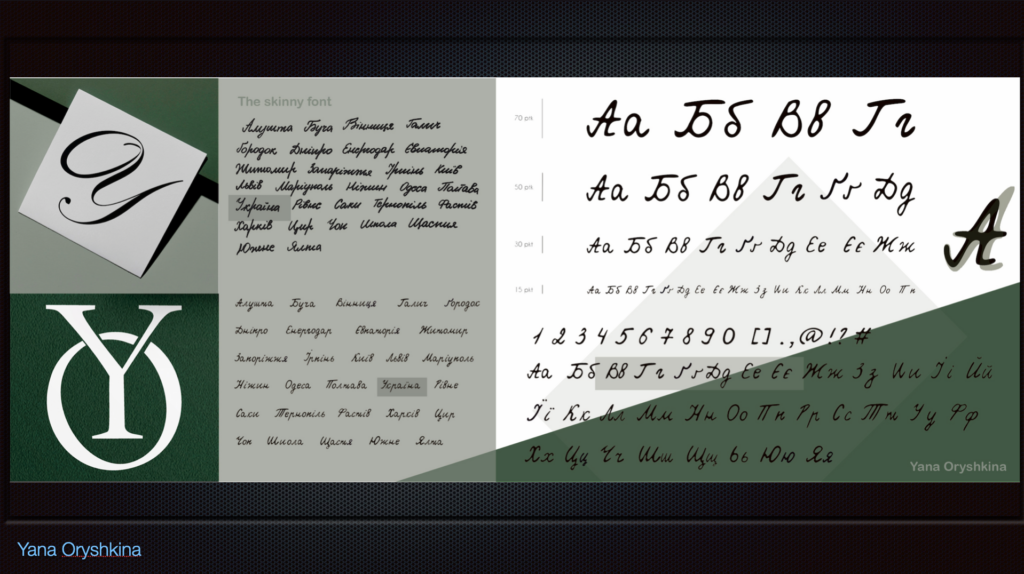 У
YO
The skinny font
Алушта Буча Вінниця Галич
Городок Дніпро Енергодар Євпаторія
Житомир Запоріжжя Ірпінь Київ
Львів Маріуполь Ніжин Одеса Полтава
Україна Рівне Саки Тернопіль Фастів
Харків Цир Чоп Шпола Щастия
Южне Ялта
Алушта Буча Вінниця Галич Городос
Дніпро Енергодар Євпаторія Житомир
Запоріжжя Ірпінь Київ Львів Маріуполь
Ніжин Одеса Полтава Україна Рівне
Саки Тернопіль Фастів Харків Цир
Чоп Шпола Щастя Южне Ялта
70 pik Аа Бб Вв Гг
50 pik Аа Бб Вв Гг Ґґ Дд
30 pkt Аа Бб Вв Гг Ґґ Дд Ее Єє Жж
15 pkt Аа Бб Вв Гг Ґґ Дд Ее Єє Жж Зз Ии Кк Лл Мм Нн Оо Пп
А
1 2 3 4 5 6 7 8 9 0 [ ] . , @ ! ? #
Аа Бб Вв Гг Ґґ Дд Ее Єє Жж Зз Ии Її Йй
Її Кк Лл Мм Нн Оо Пп Рр Сс Тт Уу Фф
Хх Цц Чч Шш Щщ Ьь Юю Яя
Yana Oryshkina
Yana Oryshkina